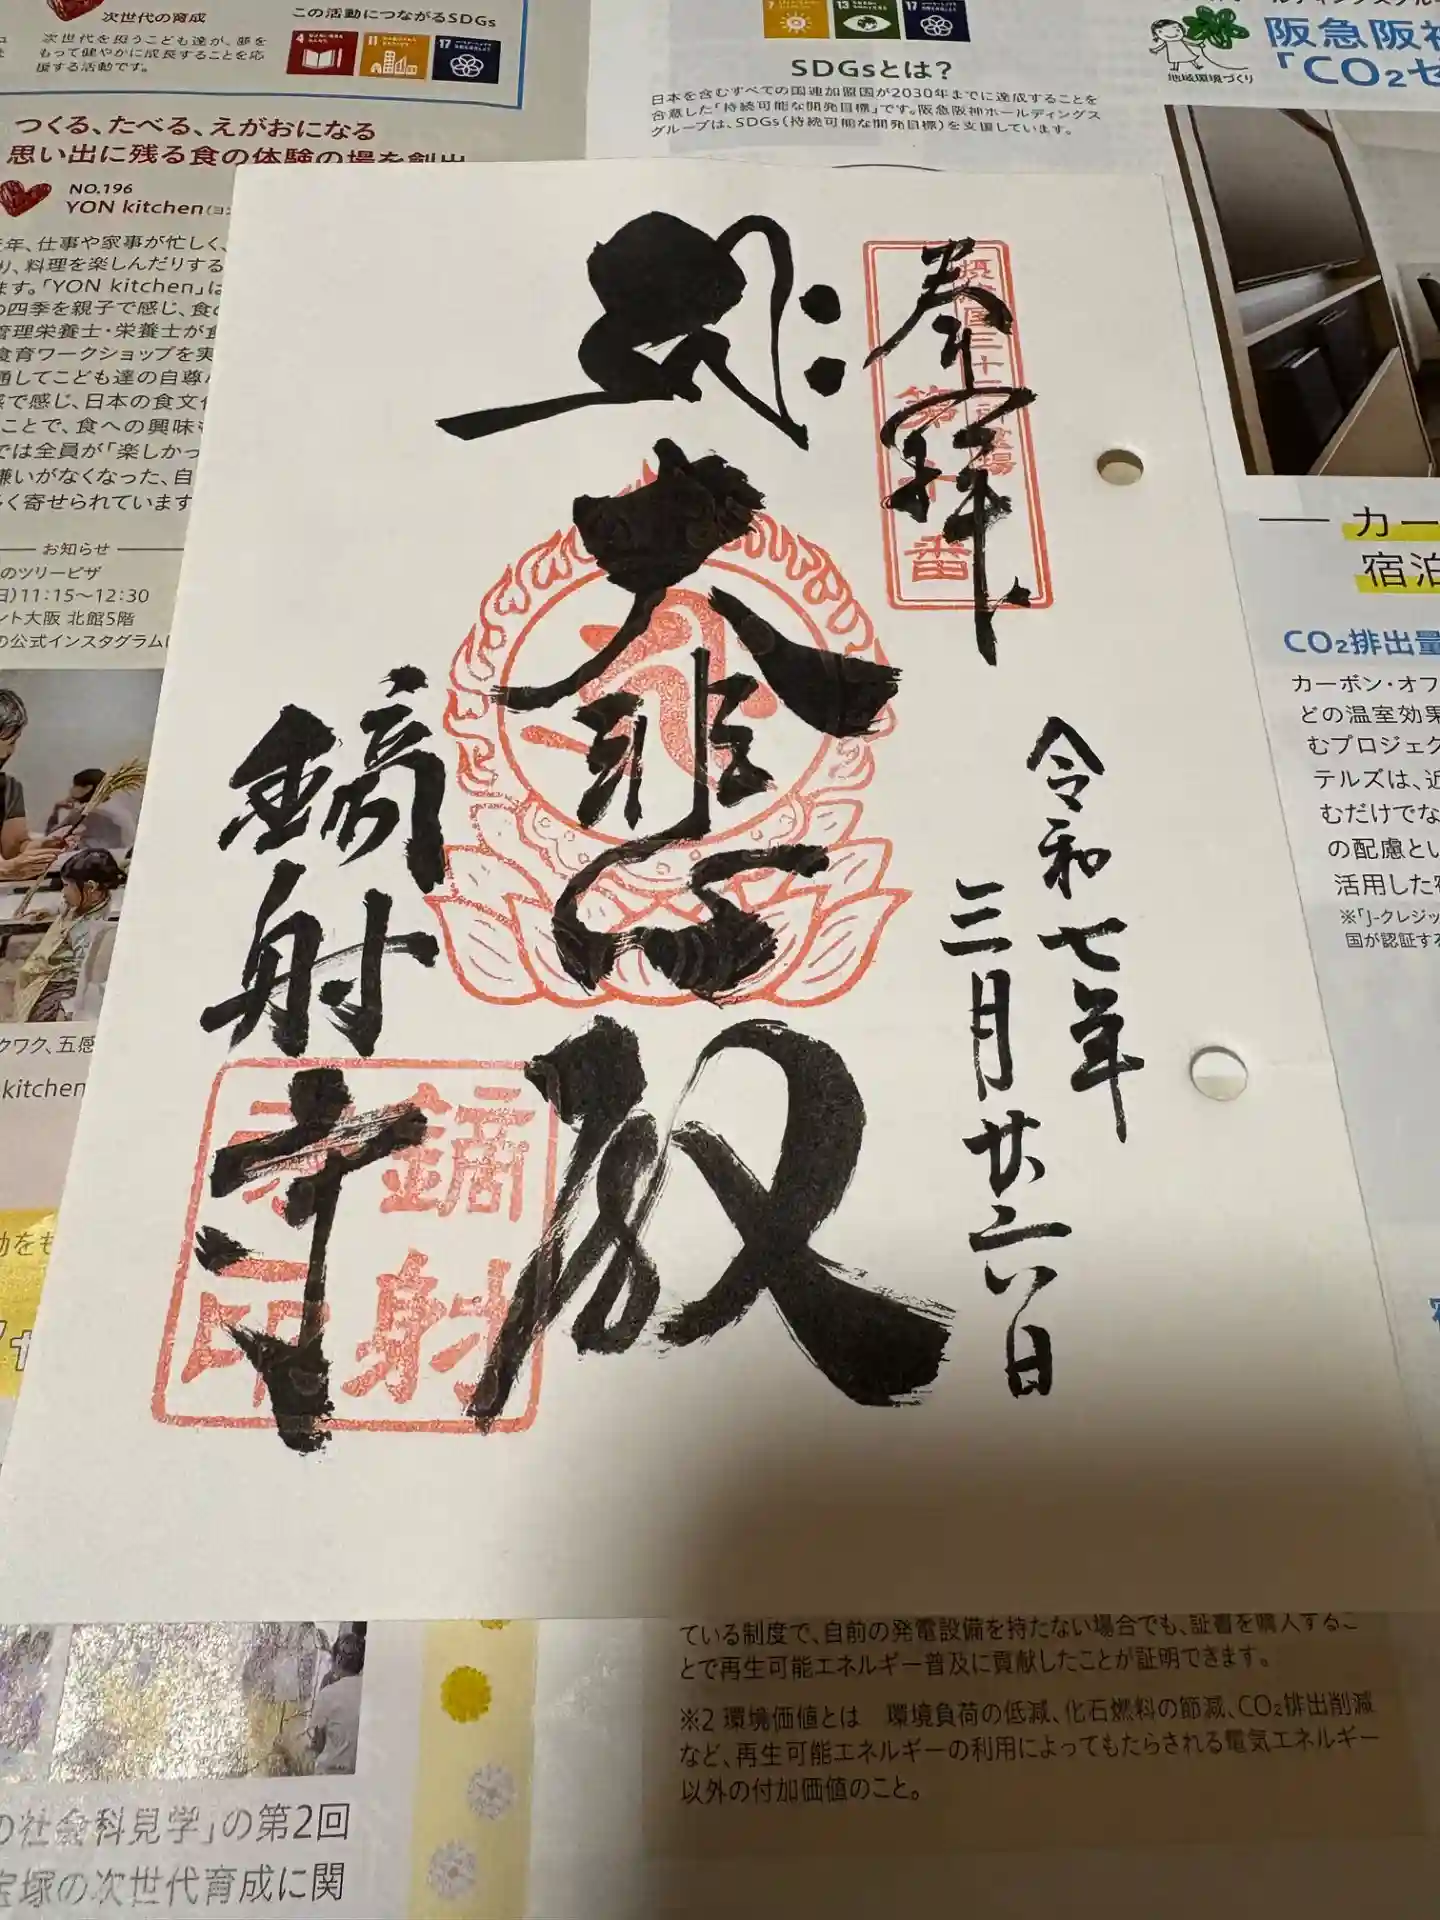 次世代の育成
次世代を担うこども達が、夢を
もって健やかに成長することを応
援する活動です。
この活動につながるSDGs
4
11
17
つくる、たべる、えがおになる
思い出に残る食の体験の場を創出
NO.196
YON kitchen
年、仕事や家事が忙しく、
り、料理を楽しんだりする
ます。「YON kitchen」は
の四季を親子で感じ、食の
管理栄養士・栄養士が食
食育ワークショップを実
通してこども達の自尊
感で感じ、日本の食文化
ことで、食への興味
では全員が「楽しかっ
嫌いがなくなった、自
多く寄せられています
お知らせ
のツリーピザ
日)11:15~12:30
ント大阪 北館5階
の公式インスタグラムに
クワク、五感
kitchen
動をも
7
13
17
SDGsとは?
日本を含むすべての国連加盟国が2030年までに達成することを
合意した「持続可能な開発目標」です。阪急阪神ホールディングス
グループは、SDGs(持続可能な開発目標)を支援しています。
地域環境づくり
阪急阪神
「CO₂ゼ
カー
宿泊
CO₂排出量
カーボン・オフ
どの温室効果
むプロジェク
テルズは、近
むだけでな
の配慮とい
活用した宿
※「J-クレジッ
国が認証する
奉拝
第
番
令和七年
三月廿六日
大悲殿
鏑射寺
鏑射
寺印
ている制度で、自前の発電設備を持たない場合でも、証書を購入するこ
とで再生可能エネルギー普及に貢献したことが証明できます。
※2 環境価値とは 環境負荷の低減、化石燃料の節減、CO₂排出削減
など、再生可能エネルギーの利用によってもたらされる電気エネルギー
以外の付加価値のこと。
の社会科見学」の第2回
宝塚の次世代育成に関